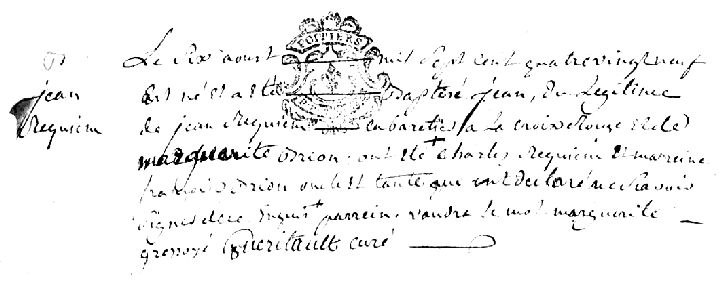 Bt
jean
Requiem
POITIERS
Le dix aoust mil sept cent quatrevingt neuf
Est né et a été baptisé jean, du legitime
de jean Requiem cabaretier a La croix Rouge et de
marguerite Drion ont été + Charles Requiem et mareine
francoise Drion oncle et tante qui ont declaré ne scavoir
signer de ce enquis + parrein, raydra le mot marguerite
greffyé Queritault curé